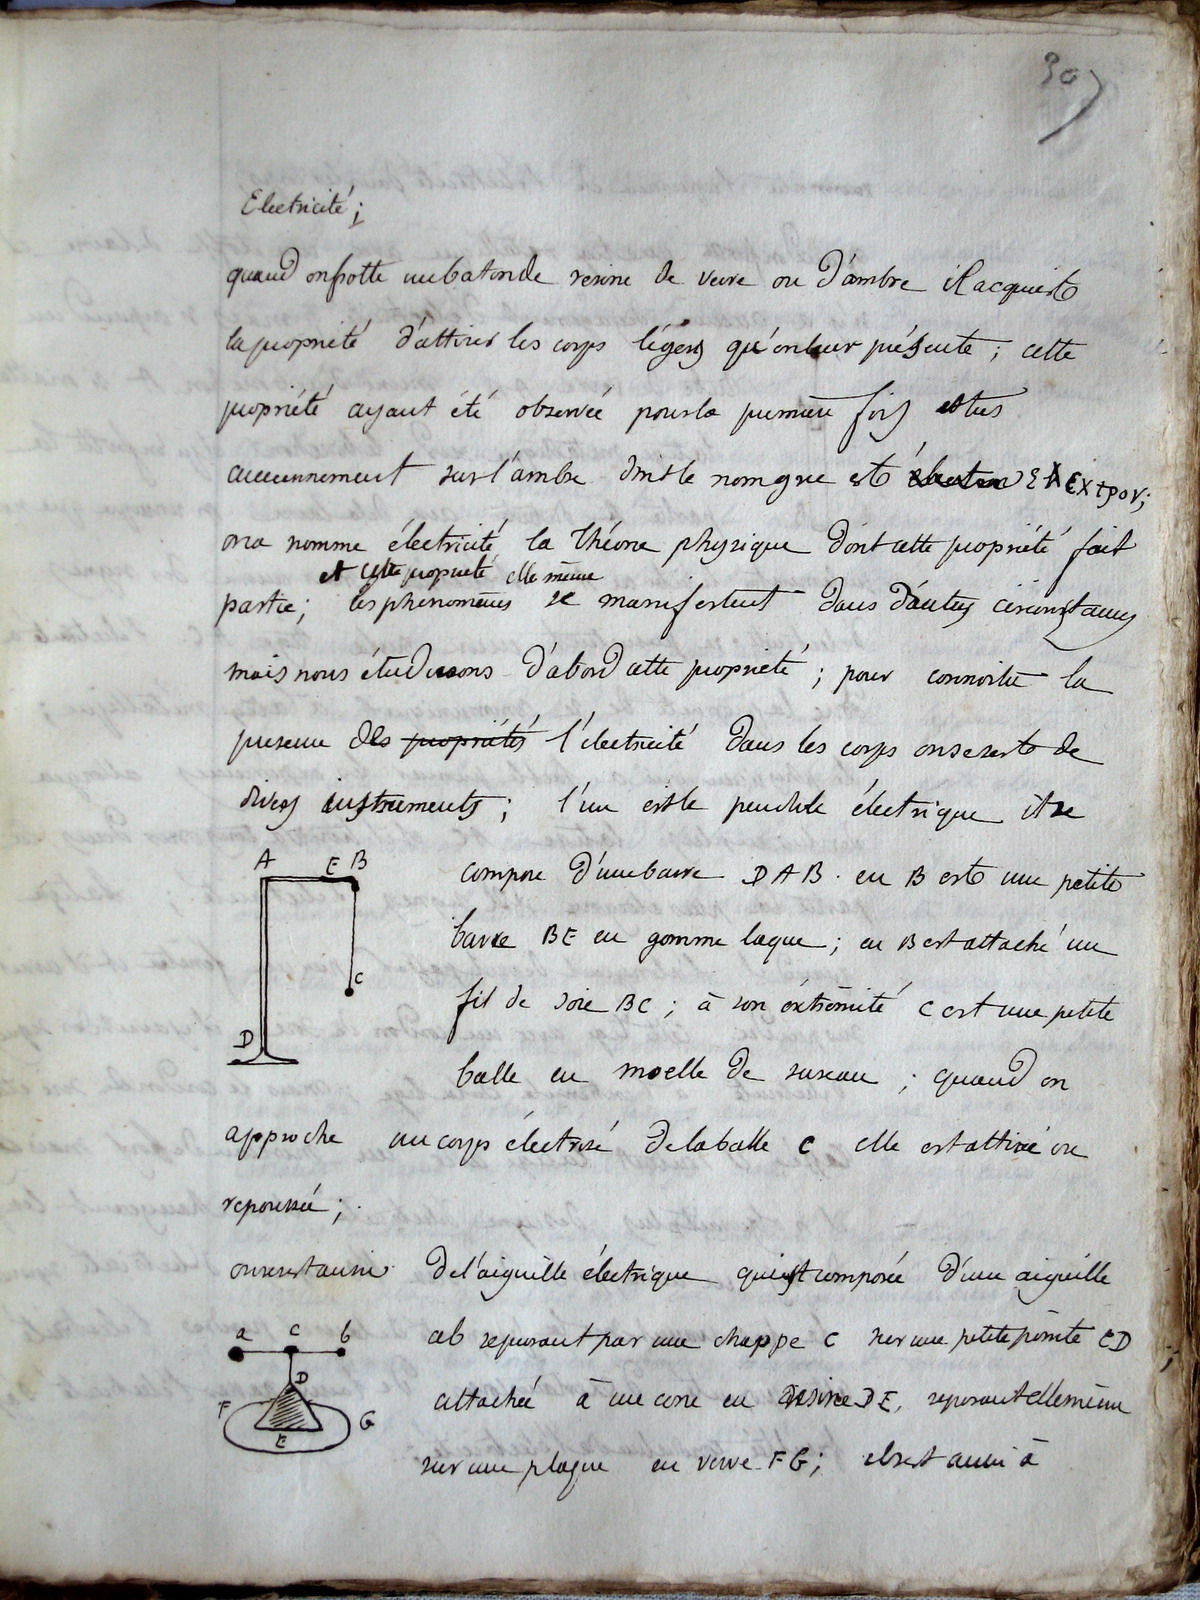 307
Electricité;
quand on frotte un baton de resine de verre ou d'ambre il acquiert
la propriété d'attirer les corps légers qu'on leur présente; cette
propriété ayant été observée pour la premiere fois et tres
anciennement sur l'ambre dont le nom grec est electron ελεκτρον;
on a nomme électricité la théorie physique dont cette propriété fait
et cette propriété elle même
partie; les phenomenes se manifestent dans d'autres circonstances
mais nous étudierons d'abord cette propriété; pour connoitre la
presence des propriétés l'électricité dans les corps on se sert de
divers instruments; l'un est le pendule électrique il se
A E B
compose d'une barre DAB. en B est une petite
barre BE en gomme laque; en B est attaché un
fil de soie BC; à son extrémité C est une petite
C
D
balle en moelle de sureau; quand on
approche un corps électrisé de la balle C elle est attirée ou
repoussée;
on se sert aussi de l'aiguille électrique qui est composée d'une aiguille
a c b
ab reposant par une chappe C sur une petite pointe CD
D
attachée à un cone en resine DE, reposant elle même
F G
E
sur une plaque en verre FG; elle sert aussi à